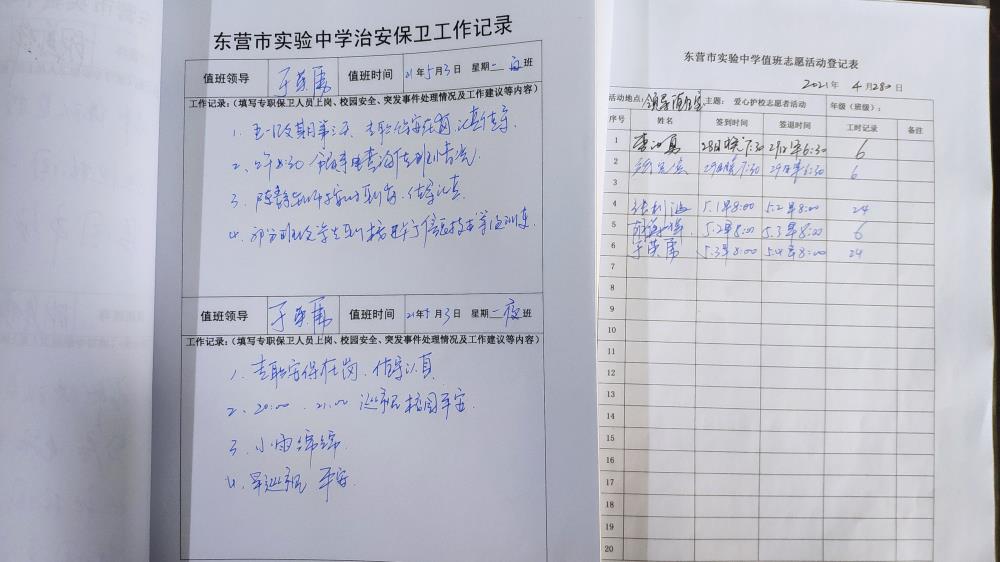 东营市实验中学治安保卫工作记录
值班领导 于荣军 值班时间 21年5月3日 星期一 白班
工作记录：（填写专职保卫人员上岗、校园安全、突发事件处理情况及工作建议等内容）
1. 五一假期第三天，专职保安在岗，认真值守
2. 上午8:30
3.
4. 部分班级学生到校
值班领导 于荣军 值班时间 21年5月3日 星期一 夜班
工作记录：（填写专职保卫人员上岗、校园安全、突发事件处理情况及工作建议等内容）
1. 专职安保在岗，值守认真
2. 20:00 21:00 巡视校园平安
3. 小雨绵绵
4. 早巡视 平安
东营市实验中学值班志愿活动登记表
2021年 4月28日
活动地点： 领导值班室 主题： 爱心护校志愿者活动 年级（班级）：
序号 姓名 签到时间 签退时间 工时记录 备注
1 28日晚7:30 29日早6:30 6
2 29日晚7:30 29日早6:30 6
3
4 5.1早8:00 5.2早8:00 24
5 5.2早8:00 5.3早8:00 6
6 于荣军 5.3早8:00 5.4早8:00 24
7
8
9
10
11
12
13
14
15
16
17
18
19
20